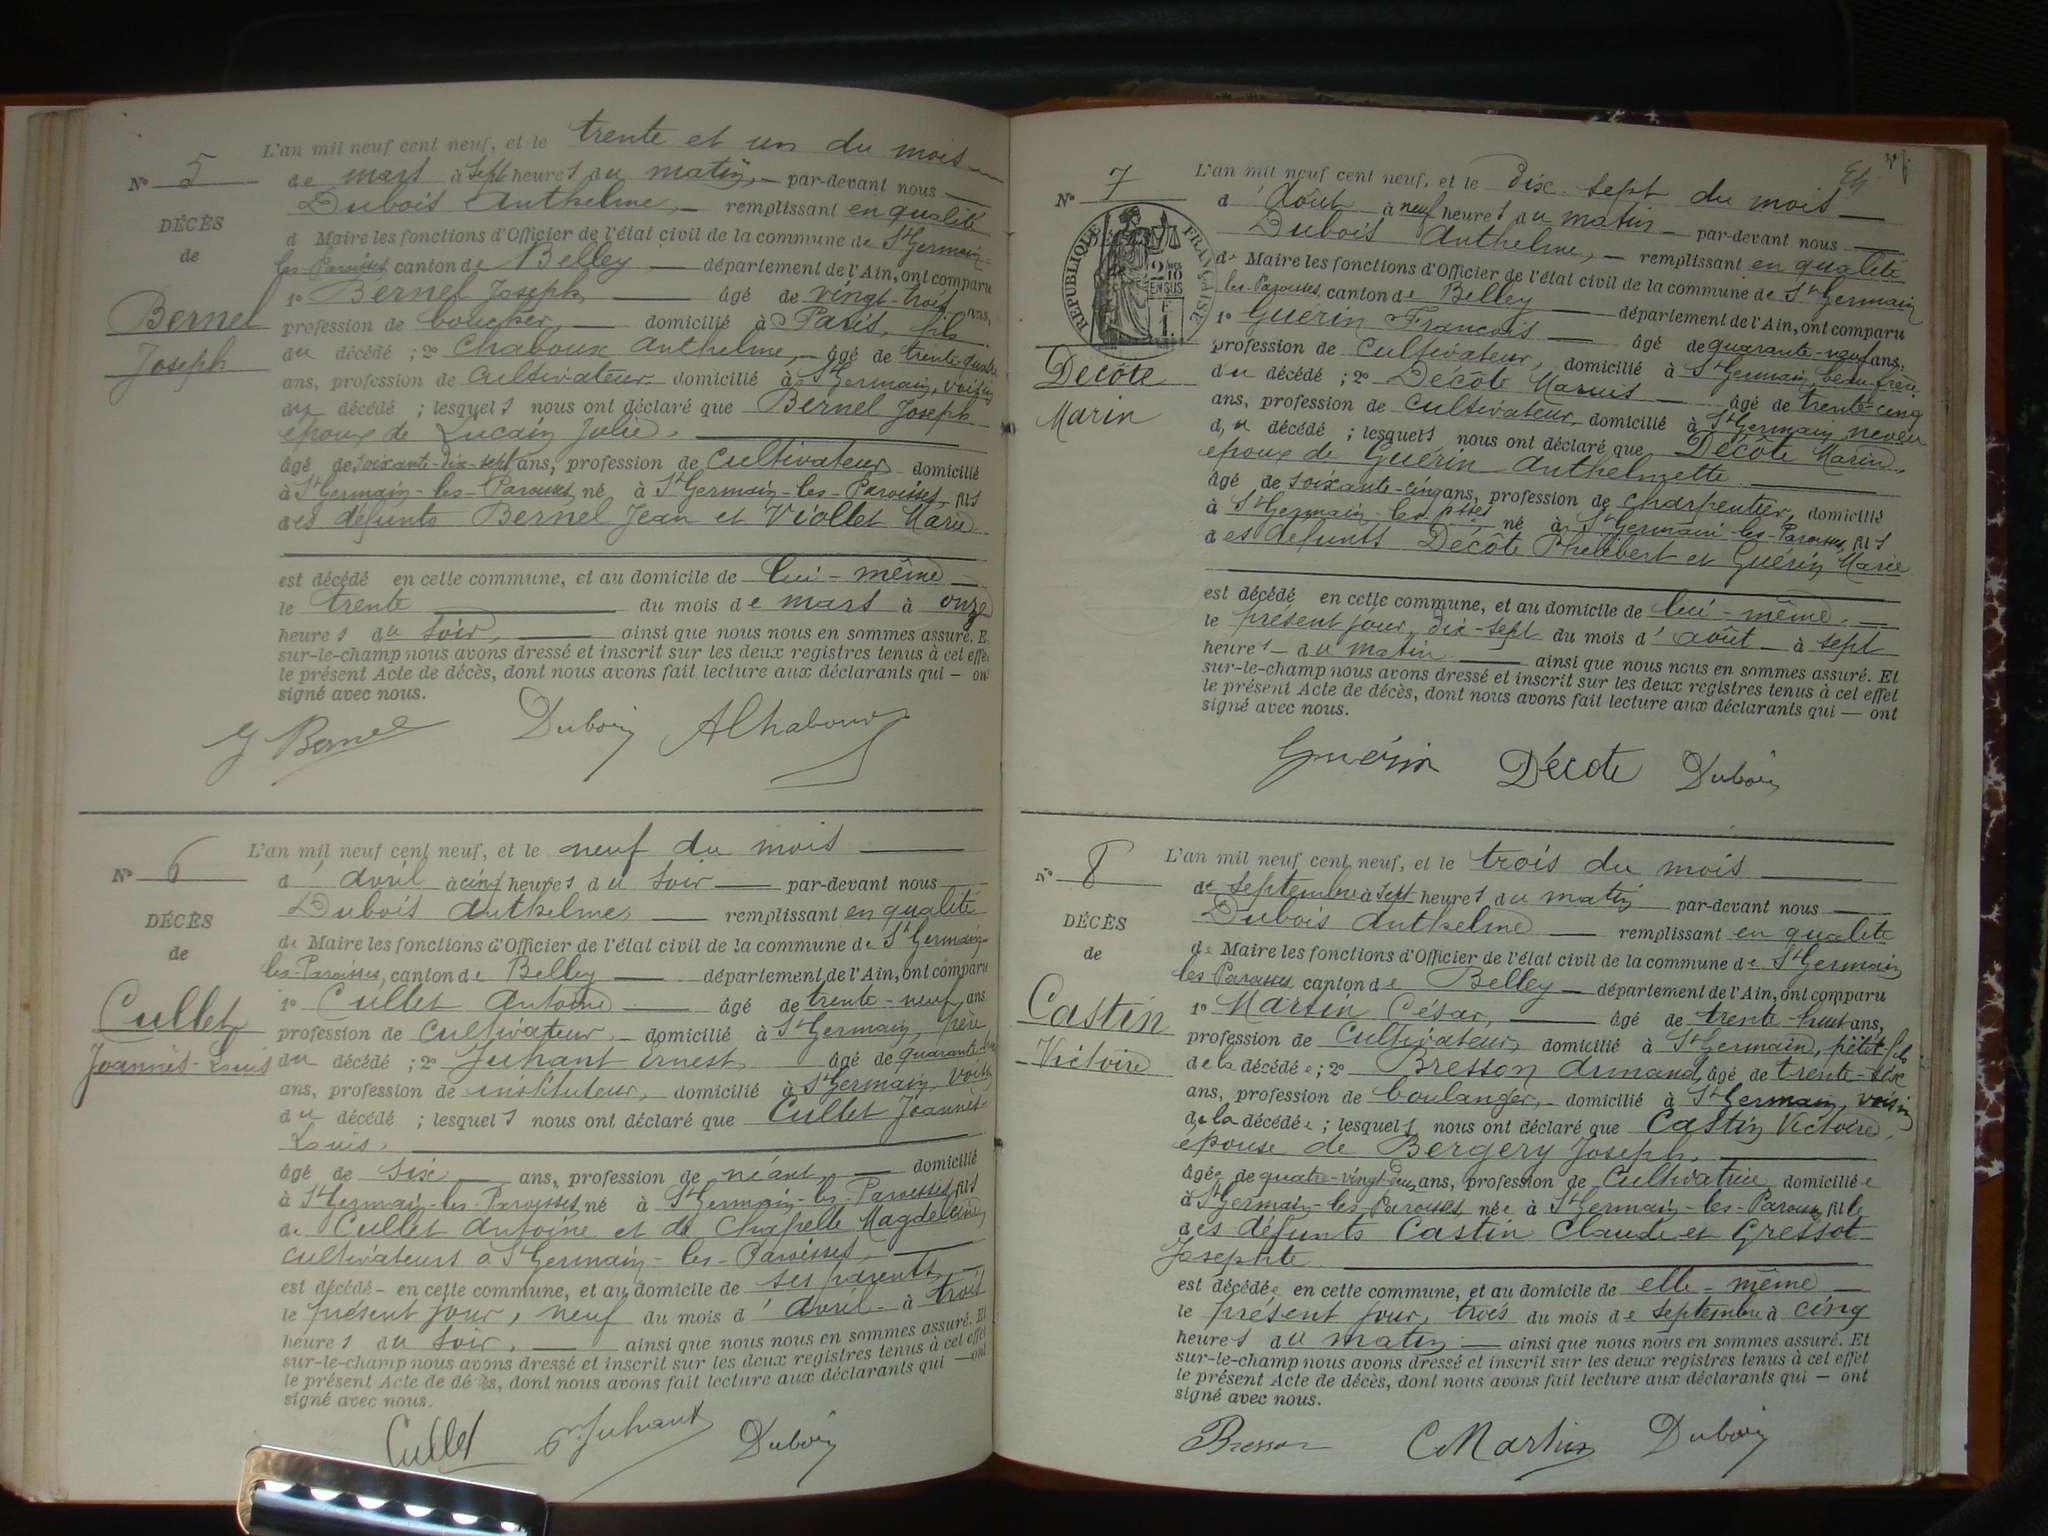 L'an mil neuf cent neuf, et le trente et un du mois
N° 5
de mars à sept heures du matin, par-devant nous
Dubois Anthelme, remplissant en qualité
DÉCÈS
d Maire les fonctions d'Officier de l'état civil de la commune de St Germain-
de
les-Paroisses canton de Belley département de l'Ain, ont comparu
1° Bernel Joseph âgé de vingt-trois ans,
Bernel
profession de boucher, domicilié à Paris, fils
Joseph
du décédé ; 2° Chaboux Anthelme, âgé de trente-quatre
ans, profession de cultivateur domicilié à St Germain, voisin
du décédé ; lesquels nous ont déclaré que Bernel Joseph
époux de Lucain Julie.
âgé de soixante-dix-sept ans, profession de cultivateur domicilié
à St Germain-les-Paroisses, né à St Germain-les-Paroisses, fils
des défunts Bernel Jean et Viollet Marie
est décédé en cette commune, et au domicile de lui-même
le trente du mois de mars à onze
heures du soir, ainsi que nous nous en sommes assuré. E
sur-le-champ nous avons dressé et inscrit sur les deux registres tenus à cet effe
le présent Acte de décès, dont nous avons fait lecture aux déclarants qui — on
signé avec nous.
J Bernel Dubois AChaboux
L'an mil neuf cent neuf, et le neuf du mois
N° 6
d'avril à cinq heures du soir par-devant nous
Dubois Anthelme, remplissant en qualité
DÉCÈS
de Maire les fonctions d'Officier de l'état civil de la commune de St Germain-
de
les-Paroisses, canton de Belley département de l'Ain, ont comparu
1° Cullet Antoine âgé de trente-neuf ans
Cullet
profession de cultivateur, domicilié à St Germain, père
Joannès-Louis
du décédé ; 2° Juhant Ernest, âgé de quarante
ans, profession de instituteur, domicilié à St Germain, voisin
du décédé ; lesquels nous ont déclaré que Cullet Joannès-
Louis.
âgé de six ans, profession de néant, domicilié
à St Germain-les-Paroisses né à St Germain-les-Paroisses, fils
de Cullet Antoine et de Chapelle Magdeleine,
cultivateurs à St Germain-les-Paroisses,
est décédé en cette commune, et au domicile de ses parents
le présent jour, neuf du mois d'avril à trois
heures du soir, ainsi que nous nous en sommes assuré. Et
sur-le-champ nous avons dressé et inscrit sur les deux registres tenus à cet effet
le présent Acte de décès, dont nous avons fait lecture aux déclarants qui — ont
signé avec nous.
Cullet Juhant Dubois
L'an mil neuf cent neuf, et le dix-sept du mois
N° 7
d'août à neuf heures du matin par-devant nous
Dubois Anthelme, remplissant en qualité
RÉPUBLIQUE FRANÇAISE
2 DMES
EN SUS
de Maire les fonctions d'Officier de l'état civil de la commune de St Germain
les-Paroisses, canton de Belley département de l'Ain, ont comparu
1° Guérin François âgé de quarante-neuf ans,
profession de cultivateur, domicilié à St Germain, beau-frère
Decôte
du décédé ; 2° Décôte Marius âgé de trente-cinq
Marin
ans, profession de cultivateur domicilié à St Germain neveu
du décédé ; lesquels nous ont déclaré que Décôte Marin,
époux de Guérin Anthelmette.
âgé de soixante-cinq ans, profession de charpentier, domicilié
à St Germain-les-psses, né à St Germain-les-Paroisses, fils
des défunts Décôte Philibert et Guérin Marie
est décédé en cette commune, et au domicile de lui-même.
le présent jour, dix-sept du mois d'août à sept
heures du matin ainsi que nous nous en sommes assuré. Et
sur-le-champ nous avons dressé et inscrit sur les deux registres tenus à cet effet
le présent Acte de décès, dont nous avons fait lecture aux déclarants qui — ont
signé avec nous.
Guérin Décote Dubois
L'an mil neuf cent neuf, et le trois du mois
N° 8
de septembre à sept heures du matin par-devant nous
Dubois Anthelme remplissant en qualité
DÉCÈS
de Maire les fonctions d'Officier de l'état civil de la commune de St Germain
de
les Paroisses canton de Belley département de l'Ain, ont comparu
Castin
1° Martin César, âgé de trente-huit ans,
profession de cultivateur, domicilié à St Germain, petit-fils
Victoire
de la décédée ; 2° Bresson Armand, âgé de trente-six
ans, profession de boulanger, domicilié à St Germain, voisin
de la décédée ; lesquels nous ont déclaré que Castin Victoire,
épouse de Bergery Joseph.
âgée de quatre-vingt-deux ans, profession de cultivatrice domiciliée
à St Germain-les-Paroisses née à St Germain-les-Paroisses fille
des défunts Castin Claude et Gressot
Josephte
est décédée en cette commune, et au domicile de elle-même
le présent jour, trois du mois de septembre à cinq
heures du matin ainsi que nous nous en sommes assuré. Et
sur-le-champ nous avons dressé et inscrit sur les deux registres tenus à cet effet
le présent Acte de décès, dont nous avons fait lecture aux déclarants qui — ont
signé avec nous.
Bresson C Martin Dubois